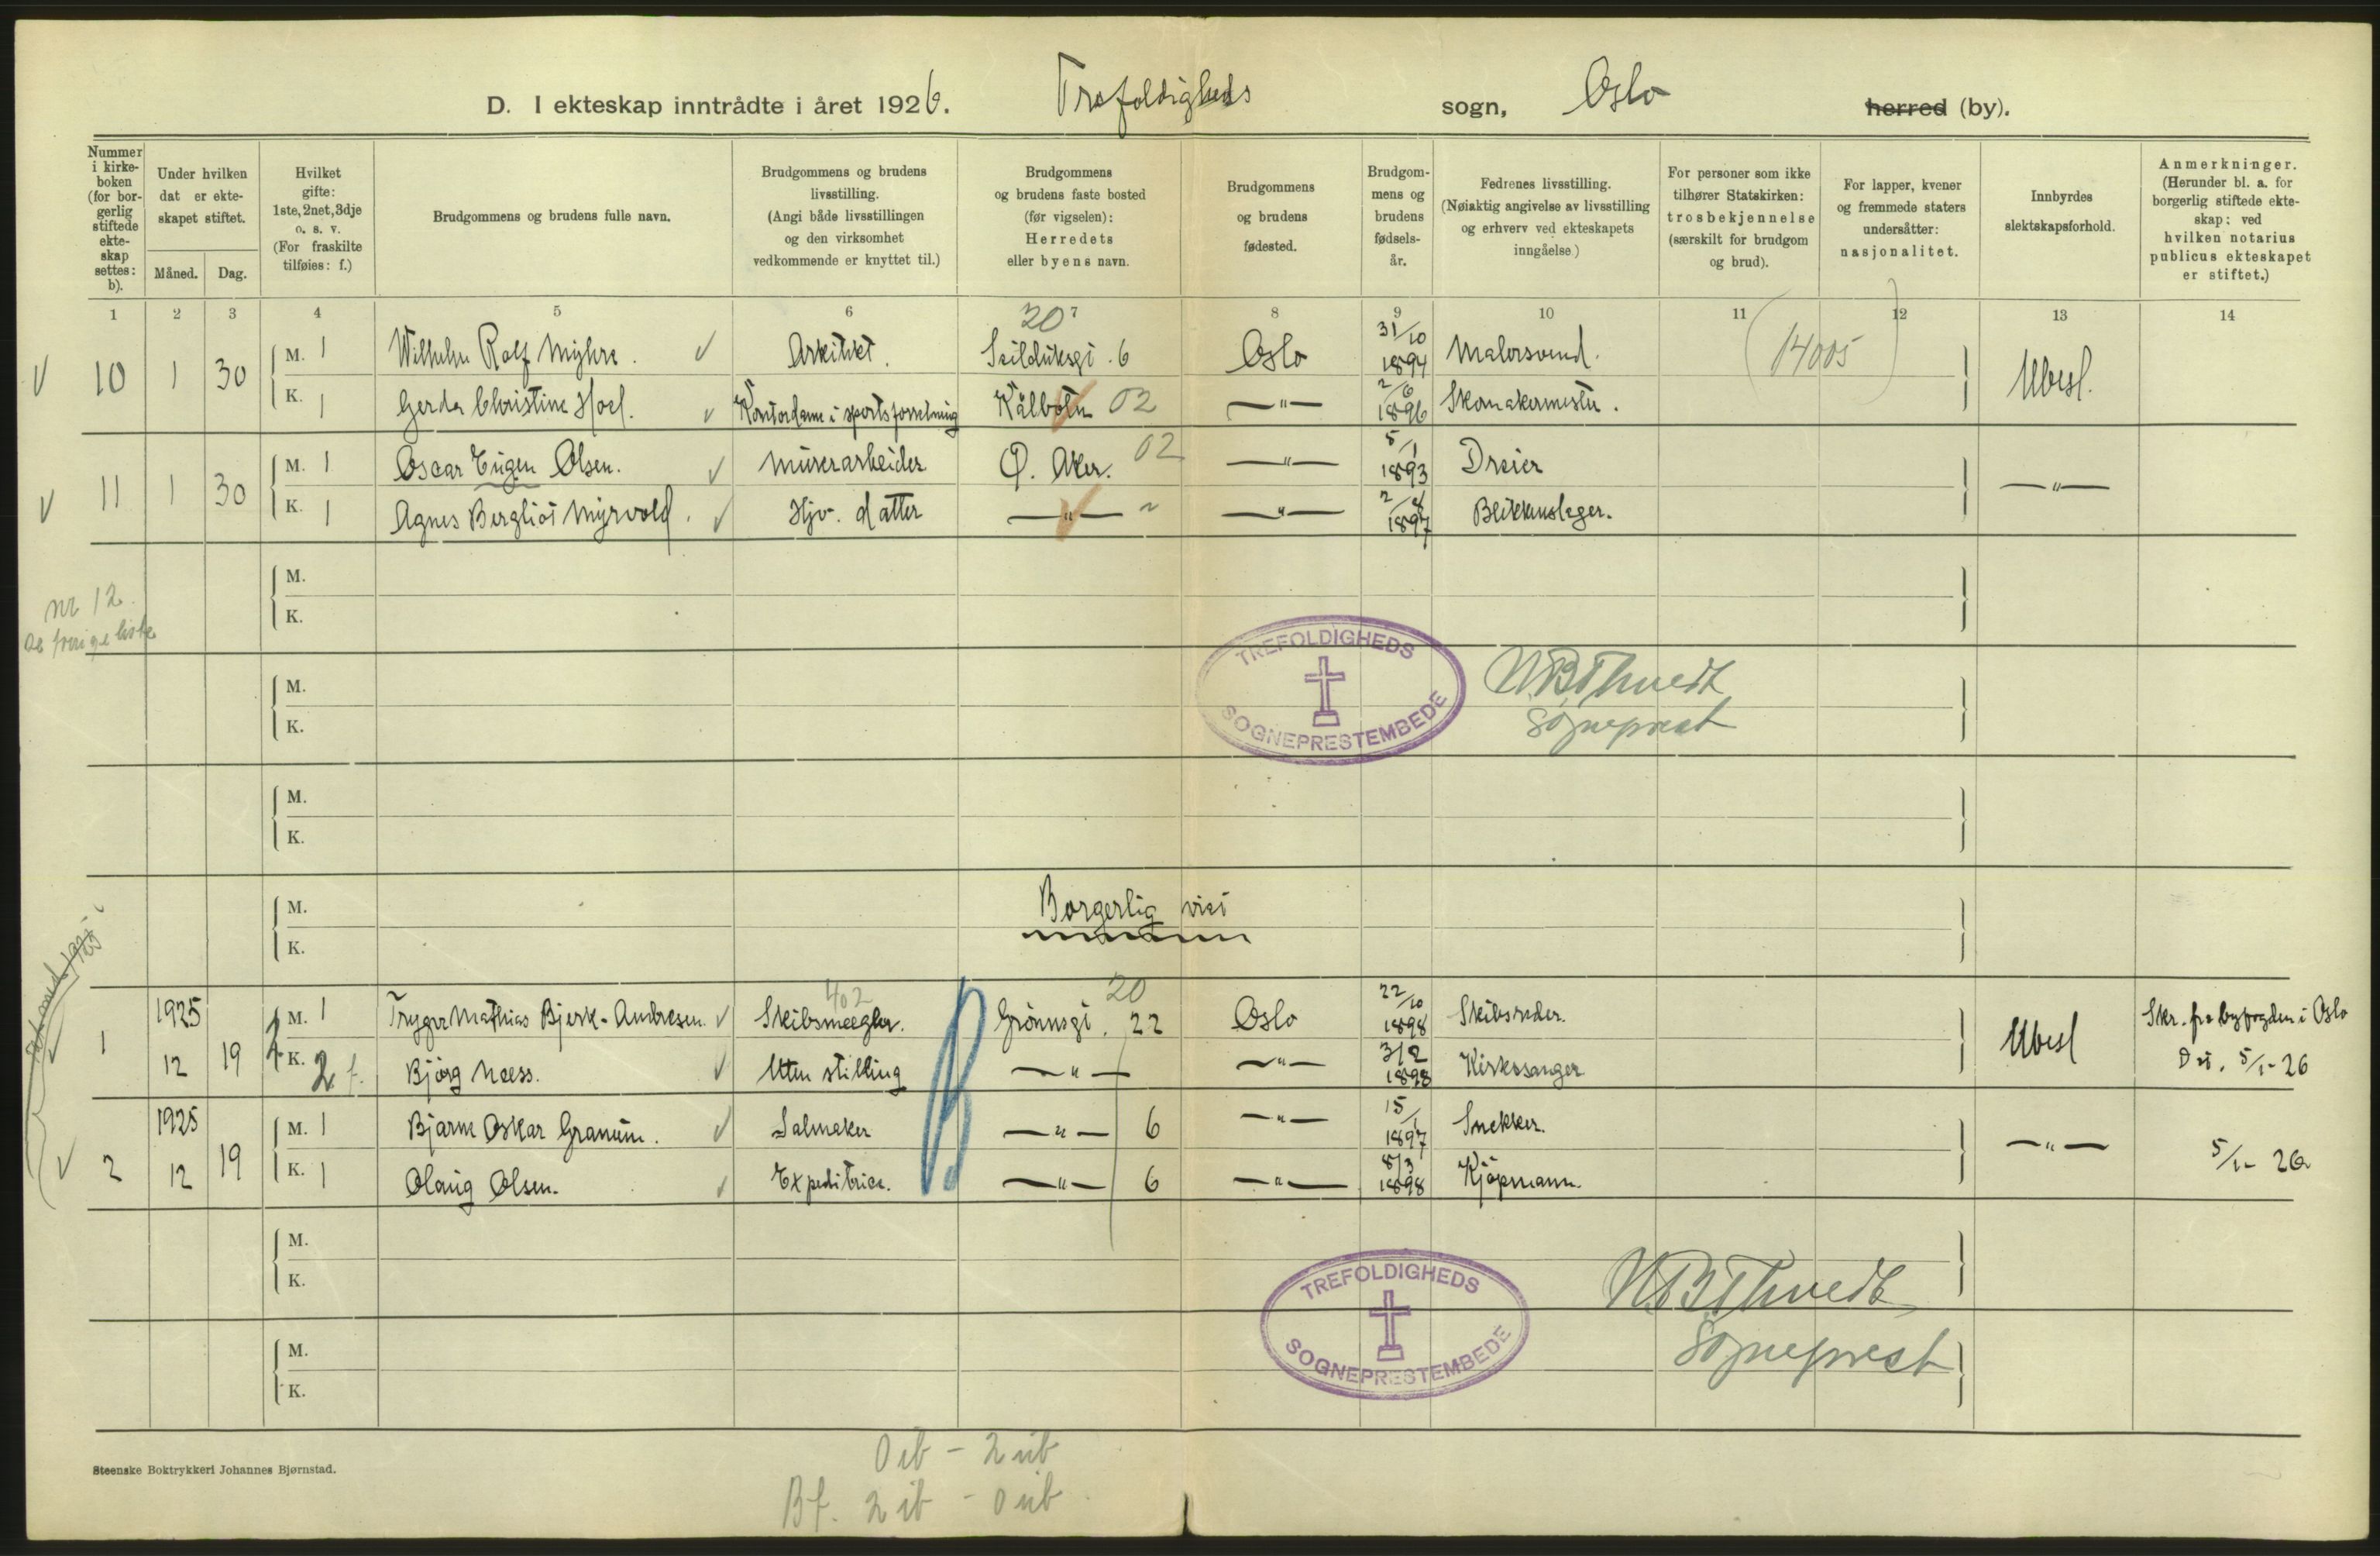 D. I ekteskap inntrådte i året 1926. Trefoldigheds sogn, Oslo herred (by).
Nummer i kirke-boken (for bor-gerlig stiftede ekte-skap settes: b).
Under hvilken dat er ekte-skapet stiftet.
Måned. Dag.
Hvilket gifte: 1ste, 2net, 3dje o. s. v. (For fraskilte tilføies: f.)
Brudgommens og brudens fulle navn.
Brudgommens og brudens livsstilling. (Angi både livsstillingen og den virksomhet vedkommende er knyttet til.)
Brudgommens og brudens faste bosted (før vigselen): Herredets eller byens navn.
Brudgommens og brudens fødested.
Brudgom-mens og brudens fødsels-år.
Fedrenes livsstilling. (Nøiaktig angivelse av livsstilling og erhverv ved ekteskapets inngåelse)
For personer som ikke tilhører Statskirken: trosbekjennelse (særskilt for brudgom og brud).
For lapper, kvener og fremmede staters undersåtter: nasjonalitet.
Innbyrdes slektskapsforhold.
Anmerkninger. (Herunder bl. a. for borgerlig stiftede ekte-skap: ved hvilken notarius publicus ekteskapet er stiftet.)
1 2 3 4 5 6 7 8 9 10 11 12 13 14
20
10 1 30 M. 1 Wilhelm Rolf Myhre. Arkitekt. Seilduksgt. 6 Oslo 31/10 1894 Malersvend. (14005) Ubesl.
K. 1 Gerda Christine Hoel. Kontordame i sportsforretning Kålbotn 02 —"— 2/6 1896 Skomakermester.
11 1 30 M. 1 Oscar Eugen Olsen. Murerarbeider Ø. Aker. 02 —"— 5/1 1893 Dreier —"—
K. 1 Agnes Bergliot Myrvold. Hjv. datter —"— " —"— 2/8 1897 Blikkenslager.
M.
K.
nr 12
se forrige liste
M.
K.
TREFOLDIGHEDS SOGNEPRESTEMBEDE
Sogneprest
M.
K.
M.
K.
Borgerlig viet
402 20
1 1925 12 19 M. 1 Trygve Mathias Bjerk-Andresen. Skibsmægler. Grønnegt. 22 Oslo 22/10 1898 Skibsreder. Ubesl Skr. fra byfogden i Oslo
K. 2 f. Bjørg Næss. Uten stilling —"— —"— 3/2 1898 Kirkesanger Dat. 5/1-26
2 1925 12 19 M. 1 Bjarne Oskar Granum. Salmaker —"— 6 —"— 15/1 1897 Snekker. —"— 5/1- 26
K. 1 Olaug Olsen. Expeditrice. —"— 6 —"— 8/3 1898 Kjøpmann.
M.
K.
TREFOLDIGHEDS SOGNEPRESTEMBEDE
Sogneprest
M.
K.
Steenske Boktrykkeri Johannes Bjørnstad.
0 ib - 2 ub
Bf. 2 ib - 0 ub